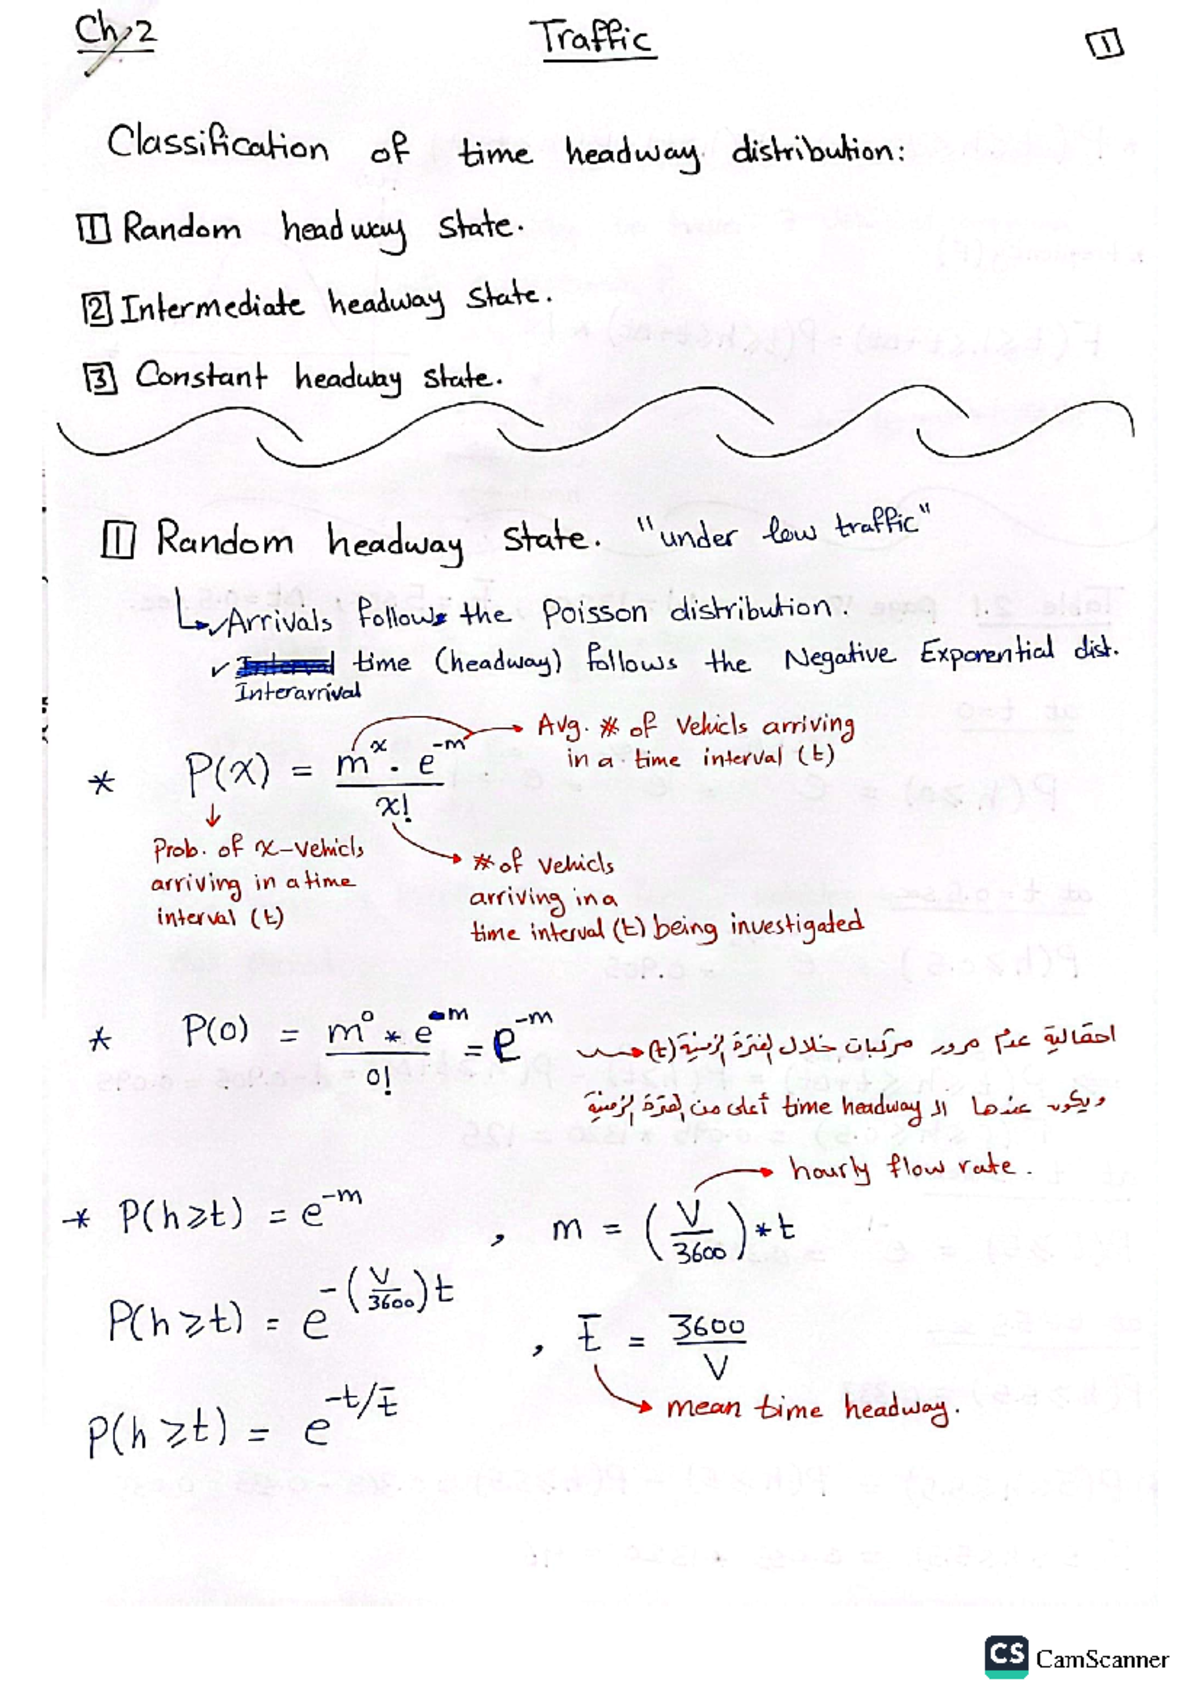 Ch.2
Traffic
1
Classification of time headway distribution:
1 Random headway state.
2 Intermediate headway state.
3 Constant headway state.
1 Random headway state. "under low traffic"
✓ Arrivals follows the Poisson distribution.
✓ Interval time (headway) follows the Negative Exponential dist.
Interarrival
* P(x) = m^x . e^-m / x!
Avg. # of vehicls arriving
in a time interval (t)
Prob. of x-vehicls
arriving in a time
interval (t)
# of vehicls
arriving in a
time interval (t) being investigated
* P(0) = m^0 * e^-m / 0! = e^-m
احتمالية عدم مرور مركبات خلال الفترة الزمنية (t)
ويكون عندها ال time headway أعلى من الفترة الزمنية
* P(h ≥ t) = e^-m , m = (V/3600) * t
hourly flow rate.
P(h ≥ t) = e^-(V/3600)t , t̄ = 3600/V
mean time headway.
P(h ≥ t) = e^-t/t̄
CS CamScanner